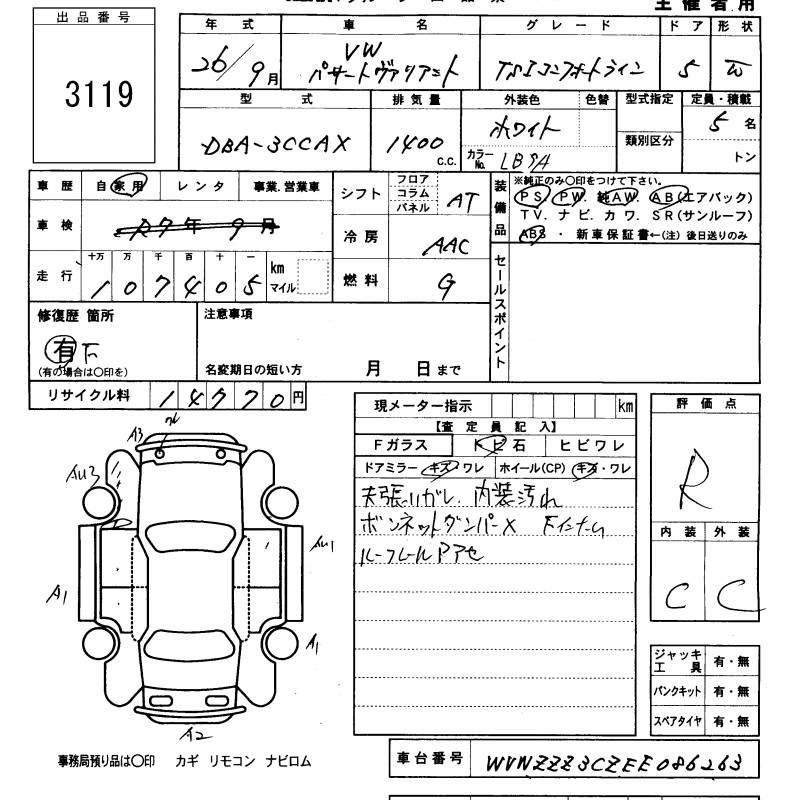 主催者用
出品番号
3119
年式 車名 グレード ドア 形状
26/9月 VW パサートヴァリアント TSIコンフォートライン 5 W
型式 排気量 外装色 色替 型式指定 定員・積載
DBA-3CCAX 1400 C.C. ホワイト カラーNo. LB9A 類別区分 5名
トン
車歴 自家用 レンタ 事業.営業車
シフト フロア コラム パネル AT
装備品 ※純正のみ〇印をつけて下さい。
PS. PW. 純AW. AB(エアバック)
TV. ナビ. カワ. SR(サンルーフ)
ABS ・ 新車保証書←(注) 後日送りのみ
車検 27年9月
冷房 AAC
走行 十万 万 千 百 十 一 km マイル
107405
燃料 G
セールスポイント
修復歴 箇所 注意事項
有 下
(有の場合は〇印を) 名変期日の短い方 月 日まで
リサイクル料 14770円
現メーター指示 km
【査定員記入】
Fガラス トビ石 ヒビワレ
ドアミラー キズ・ワレ ホイール(CP) キズ・ワレ
天張ハガレ. 内装汚れ
ボンネットダンパーX
ルーフレールPアセ
評価点
R
内装 外装
C C
A3
AU3
AU1
A1
A1
A2
ジャッキ 工具 有・無
パンクキット 有・無
スペアタイヤ 有・無
事務局預り品は〇印 カギ リモコン ナビロム
車台番号 WVWZZZ3CZEE086263